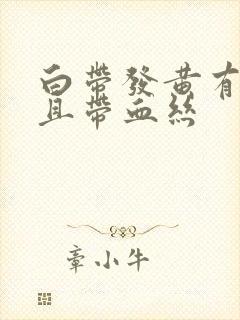 白帶發黃有
且帶血絲
章小牛